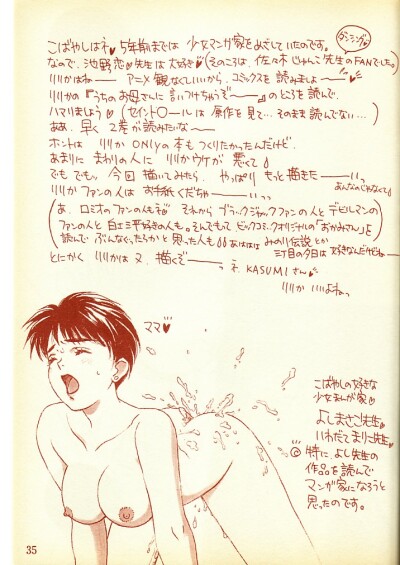 こばやしはネ♥5年前までは少女マンガ家をめざしていたのです。
ダンシング♥
なので、池野恋♥先生は大好き♥(そのころは、佐々木じゅんこ先生のFANでした。)
リリカはねー アニメ観なくていいから、コミックスを読みましょ〜〜♥
リリカの『うちのお母さんに言いつけちゃうぞ〜〜』のところを読んで、
ハマりましょう♥(セイントロールは原作を見て…そのまま読んでない…)
ああ、早く2巻が読みたいな〜
ホントは リリカONLYの本もつくりたかったんだけど、
あまりに まわりの人に リリカウケが 悪くて
でもでもっ。今回 描いてみたら、やっぱり もっと描きたーいっ
あんなのじゃなくて
リリカファンの人は お手紙くだちゃーいっ
(あ、ロミオのファンの人もネ それから ブラックジャックファンの人と デビルマンの
ファンの人と 白土三平好きの人も。そんでもって ビックコミックオリジナルの『おかみさん』を
読んで ぶんなぐったろかと 思った人も あはははは みのり伝説とか
三丁目の夕日は 好きなんだけどねー)
とにかく リリカは 又、描くぞーっ ネ、KASUMIさん♥
リリカ いいよねっ
ママ♥
こばやしの好きな
少女まんが家♥
よしまさこ先生♥
いわだてまりこ先生♥
◎特に、よし先生の
作品を読んで
マンガ家になろうと
思ったのです。
35